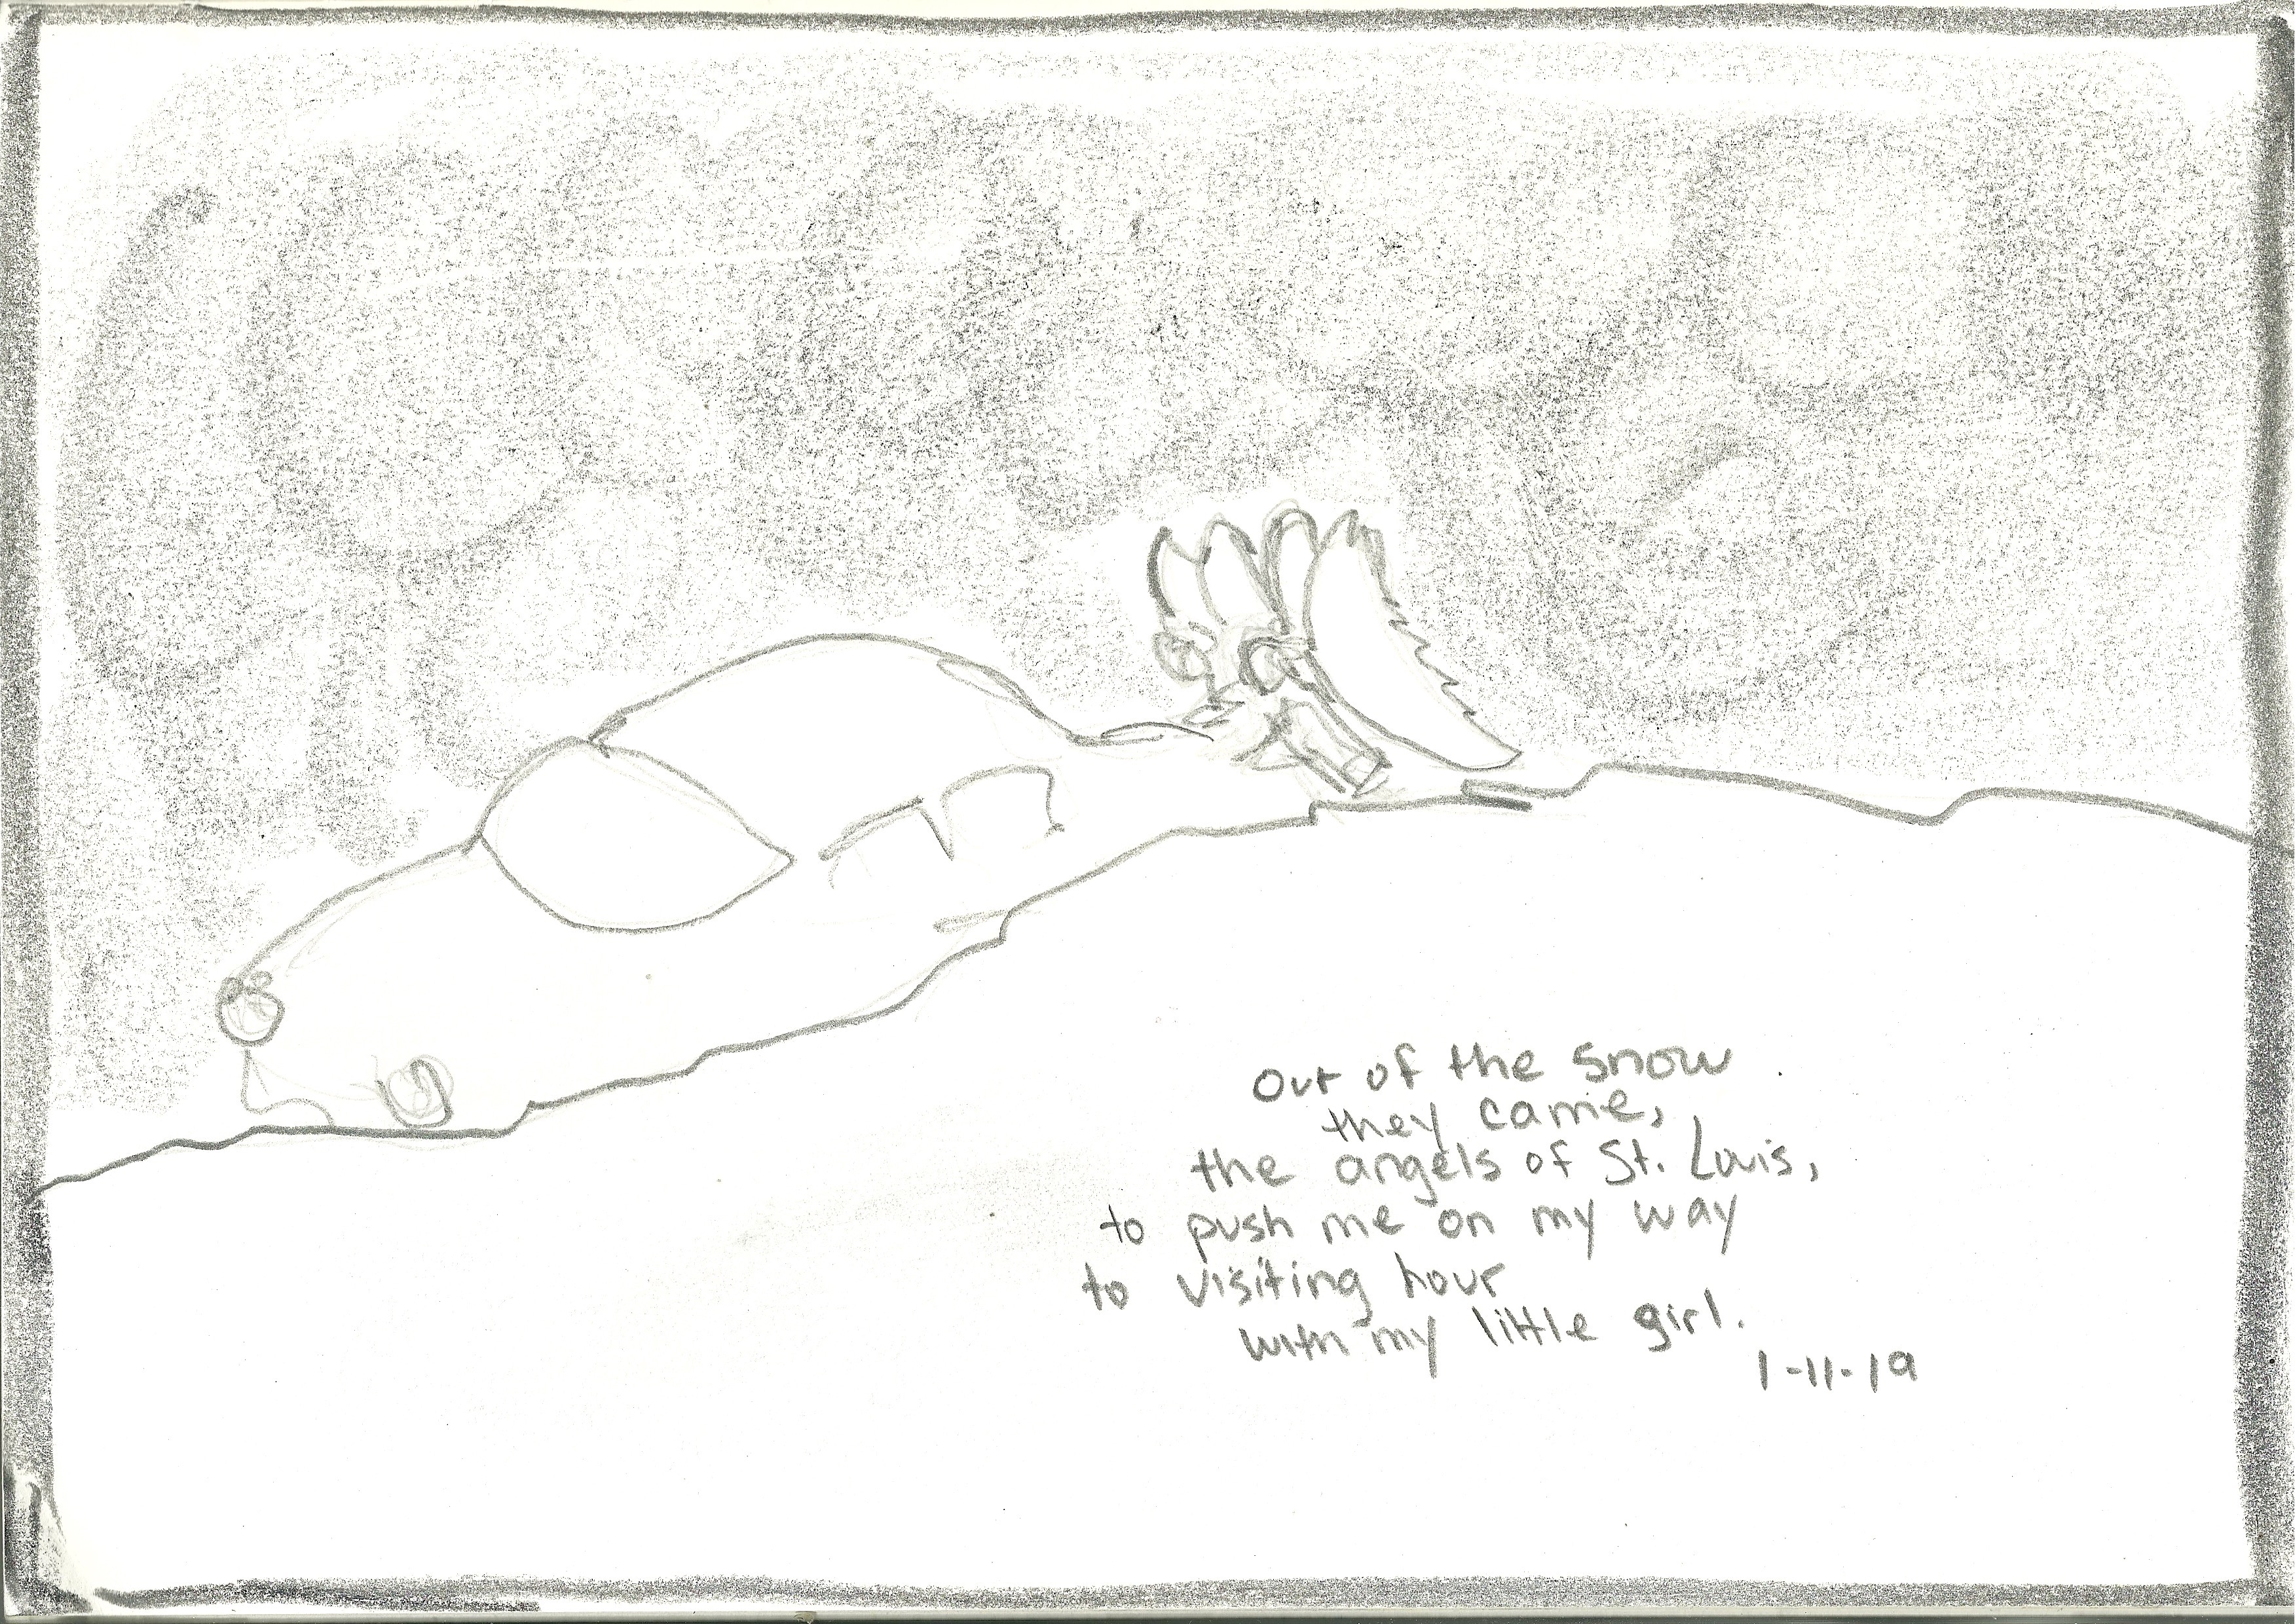 Out of the snow
they came,
the angels of St. Louis,
to push me on my way
to visiting hour
with my little girl.
1-11-19